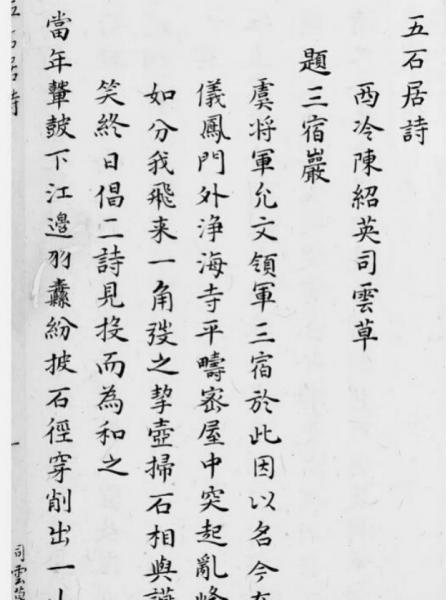 五石居詩
西泠陳紹英司雲草
題三宿巖
虞將軍允文領軍三宿於此因以名今在
儀鳳門外淨海寺平疇密屋中突起亂峰
如分我飛来一角弢之挈壺掃石相與讌
笑終日倡二詩見投而為和之
當年鼙鼓下江邊羽纛紛披石徑穿削出一
五石居詩
一
司雲草